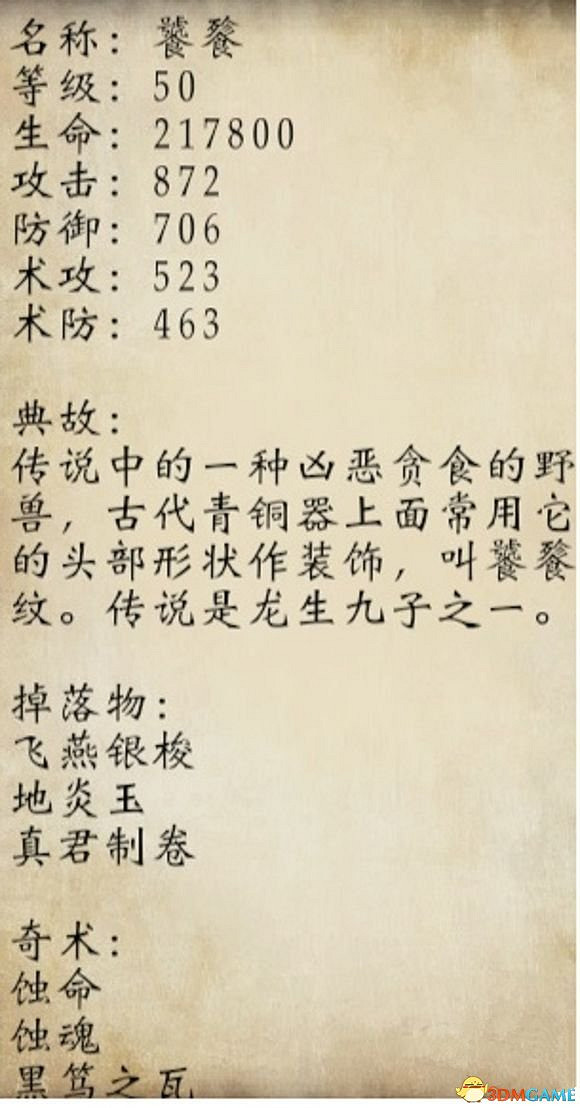 名称：饕餮
等级：50
生命：217800
攻击：872
防御：706
术攻：523
术防：463
典故：
传说中的一种凶恶贪食的野
兽，古代青铜器上面常用它
的头部形状作装饰，叫饕餮
纹。传说是龙生九子之一。
掉落物：
飞燕银梭
地炎玉
真君制卷
奇术：
蚀命
蚀魂
黑笃之瓦
3DMGAME